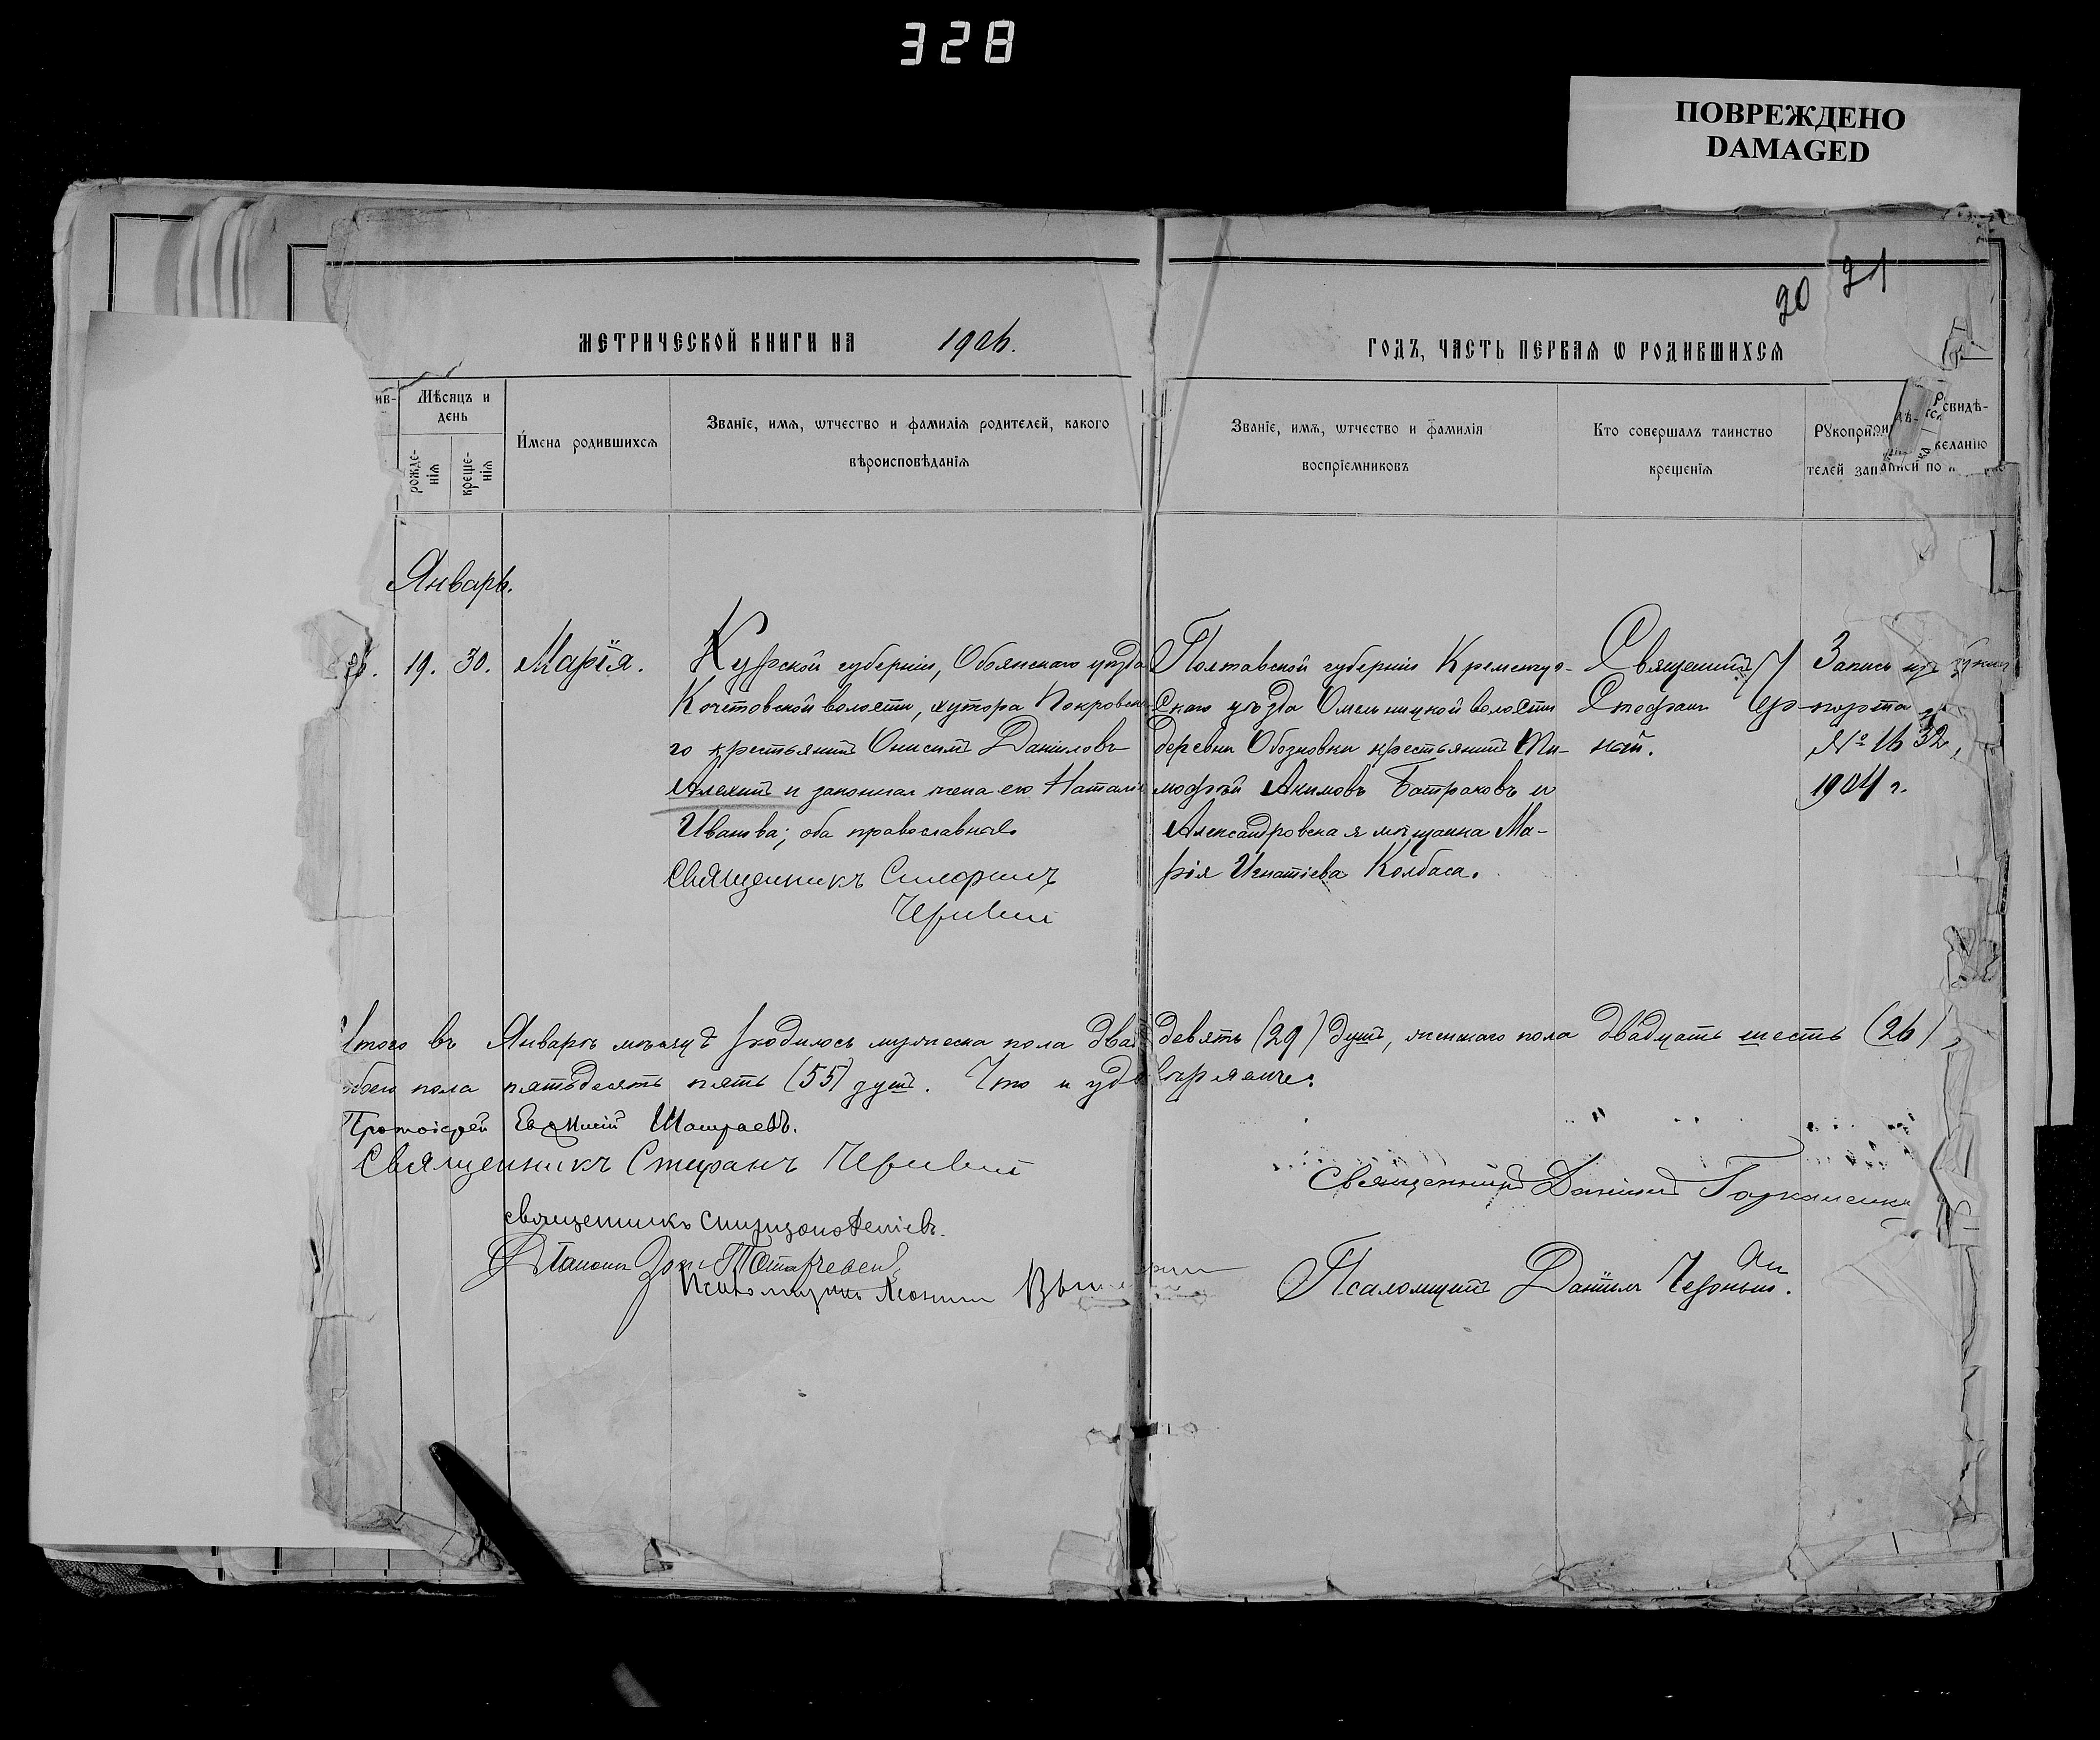 328
ПОВРЕЖДЕНО
DAMAGED
20 21
МЕТРИЧЕСКОЙ КНИГИ НА 1906.
ГОДЪ, ЧАСТЬ ПЕРВАЯ Ѡ РОДИВШИХСЯ
ив-
Мѣсяцъ и день
рожде-нія
креще-нія
Имена родившихся
Званіе, имя, ѿчество и фамилія родителей, какого
вѣроисповѣданія
Званіе, имя, ѿчество и фамилія
воспріемниковъ
Кто совершалъ таинство
крещенія
Рукопри
свидѣ-
телей записи по желанію
Январь.
26. 19. 30. Марія.
Курской губерніи, Обоянскаго уѣзда
Кочетовской волости, хутора Покровска-
го крестьянинъ Онисимъ Даніиловъ
Алехинъ и законная жена его Наталія
Иванова; оба православные.
Священникъ Стефанъ
Чернай
Полтавской губерніи Кременчуг-
скаго уѣзда Омельницкой волости
деревни Обозновки крестьянинъ Ти-
мофѣй Акимовъ Батраковъ и
Александровская мѣщанка Ма-
рія Игнатіева Колбаса.
Священникъ
Стефанъ Чер-
най.
Запись изъ
порта
№ 1632,
1904 г.
Итого въ Январѣ мѣсяцѣ родилось мужеска пола двад девять (29) душъ, женскаго пола двадцать шесть (26)
обоего пола пятьдесятъ пять (55) душъ. Что и удостовѣряемъ:
Протоіерей Евфимій
Священникъ Стефанъ Чернай
Священникъ Даніилъ
священникъ Спиридонъ
Псаломщикъ
Псаломщикъ Даніилъ Черный.